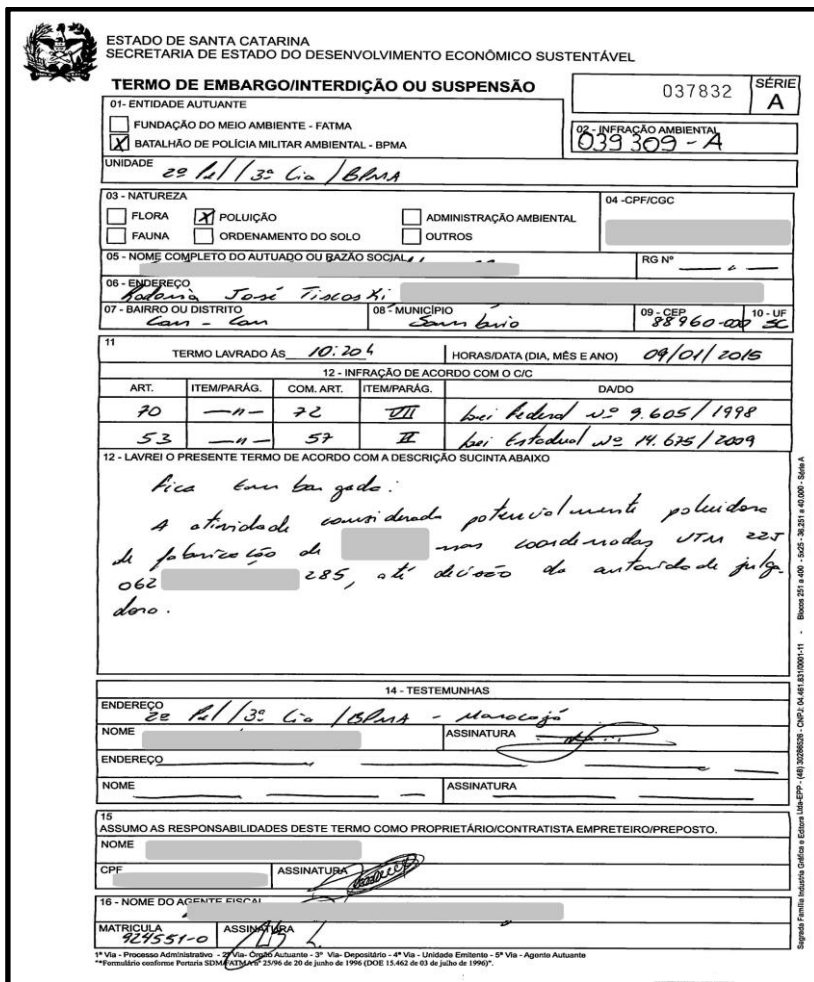 ESTADO DE SANTA CATARINA
SECRETARIA DE ESTADO DO DESENVOLVIMENTO ECONÔMICO SUSTENTÁVEL
TERMO DE EMBARGO/INTERDIÇÃO OU SUSPENSÃO
037832
SÉRIE
A
01- ENTIDADE AUTUANTE
FUNDAÇÃO DO MEIO AMBIENTE - FATMA
X BATALHÃO DE POLÍCIA MILITAR AMBIENTAL - BPMA
02 - INFRAÇÃO AMBIENTAL
039309-A
UNIDADE
2º Pel / 3ª Cia / BPMA
03 - NATUREZA
FLORA X POLUIÇÃO ADMINISTRAÇÃO AMBIENTAL
FAUNA ORDENAMENTO DO SOLO OUTROS
04 -CPF/CGC
05 - NOME COMPLETO DO AUTUADO OU RAZÃO SOCIAL
RG Nº
06 - ENDEREÇO
Rodovia José Tiscoski
07 - BAIRRO OU DISTRITO
08 - MUNICÍPIO
09 - CEP
88960-000
10 - UF
SC
11
TERMO LAVRADO ÁS 10:20h HORAS/DATA (DIA, MÊS E ANO) 09/01/2015
12 - INFRAÇÃO DE ACORDO COM O C/C
ART. ITEM/PARÁG. COM. ART. ITEM/PARÁG. DA/DO
70 —n— 72 VII Lei Federal nº 9.605/1998
53 —n— 57 II Lei Estadual nº 14.675/2009
12 - LAVREI O PRESENTE TERMO DE ACORDO COM A DESCRIÇÃO SUCINTA ABAIXO
Fica embargada:
A atividade considerada potencialmente poluidora
de fabricação de nas coordenadas UTM 22J
062 285, até decisão da autoridade julga-
dora.
14 - TESTEMUNHAS
ENDEREÇO
2º Pel / 3ª Cia / BPMA - Maracajá
NOME
ASSINATURA
ENDEREÇO
NOME
ASSINATURA
15
ASSUMO AS RESPONSABILIDADES DESTE TERMO COMO PROPRIETÁRIO/CONTRATISTA EMPRETEIRO/PREPOSTO.
NOME
CPF
ASSINATURA
16 - NOME DO AGENTE FISCAL
MATRICULA
924551-0
ASSINATURA
1ª Via - Processo Administrativo - 2ª Via- Órgão Autuante - 3ª Via- Depositário - 4ª Via - Unidade Emitente - 5ª Via - Agente Autuante
**Formulário conforme Portaria SDM/FATMA nº 25/96 de 20 de junho de 1996 (DOE 15.462 de 03 de julho de 1996)".
Sagrada Família Industria Gráfica e Editora Ltda-EPP - (48) 30286526 - CNPJ: 04.461.831/0001-11 - Blocos 251 a 400 - 5x25 - 36.251 a 40.000 - Série A